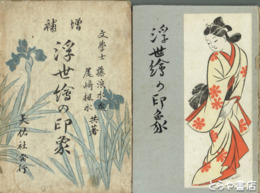 増補
文學士
藤懸静也
尾崎楓水 共著
浮世繪の印象
美佑社發行
浮世繪の印象
とらや書店